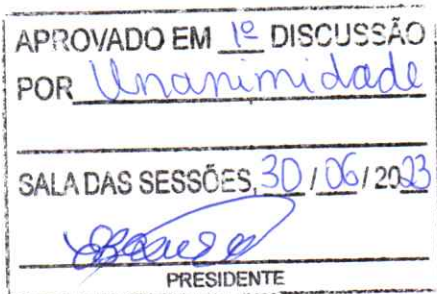 APROVADO EM 1º DISCUSSÃO
POR Unanimidade
SALA DAS SESSÕES, 30 / 06 / 2023
PRESIDENTE